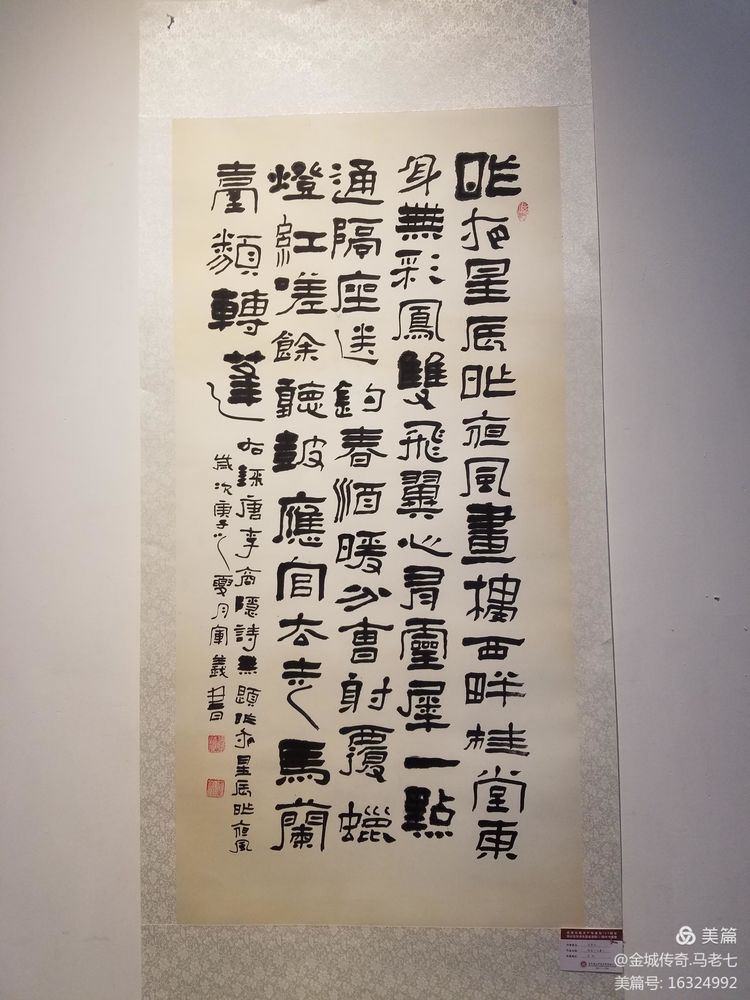 昨夜星辰昨夜風畫樓西畔桂堂東
身無彩鳳雙飛翼心有靈犀一點
通隔座送鈎春酒暖分曹射覆蠟
燈紅嗟餘聽鼓應官去走馬蘭
臺類轉蓬
右錄唐李商隱詩無題昨夜星辰昨夜風
歲次庚子之夏月軍義書
美篇
@金城传奇.马老七
美篇号: 16324992